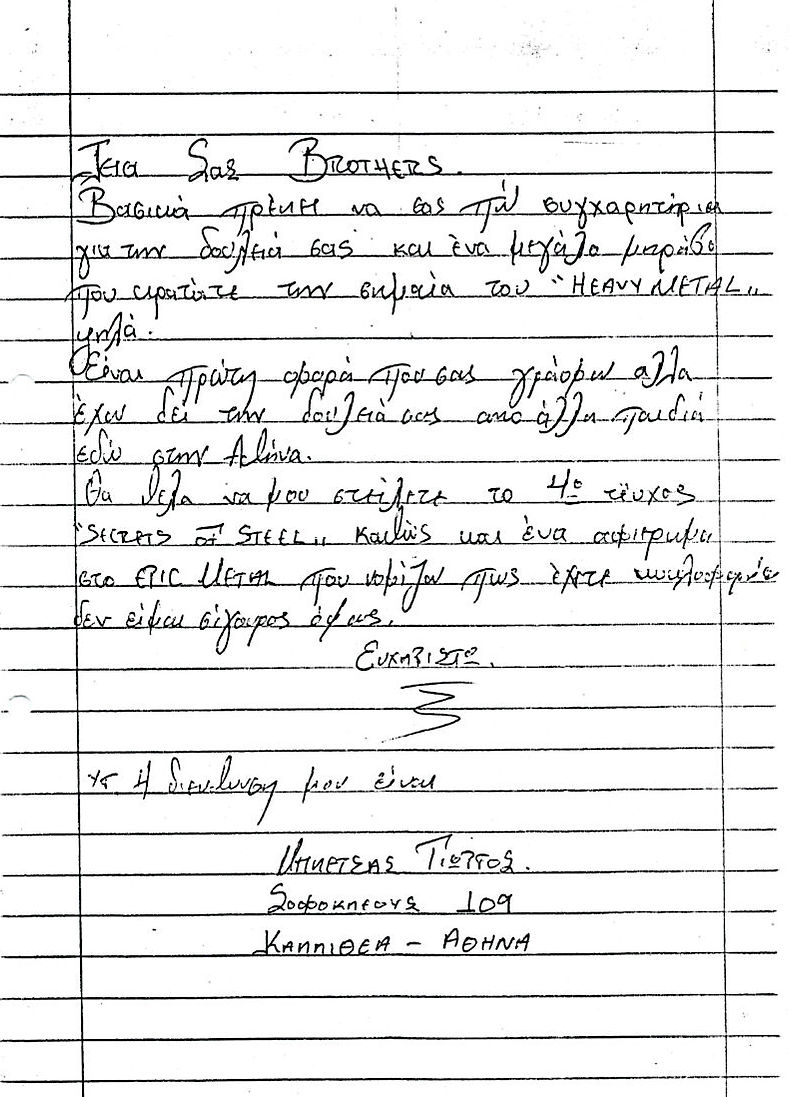 Γεια Σας BROTHERS.
Βασικά πρέπει να σας πώ συγχαρητήρια
για την δουλειά σας και ένα μεγάλο μπράβο
που κρατάτε την σημαία του "HEAVY METAL"
ψηλά.
Είναι πρώτη φορά που σας γράφω αλλα
έχω δεί την δουλειά σας από άλλα παιδιά
εδώ στην Αθήνα.
Θα θελα να μου στείλετε το 4ο τεύχος
"SECRETS of STEEL" καθώς και ένα αφιέρωμα
στο EPIC METAL που νομίζω πως έχετε κυκλοφορήσει
δεν είμαι σίγουρος όμως.
ΕΥΧΑΡΙΣΤΩ.
ΥΓ. Η διευθυνση μου είναι
ΓΙΩΡΓΟΣ.
ΣΟΦΟΚΛΕΟΥΣ 109
ΚΑΛΛΙΘΕΑ – ΑΘΗΝΑ